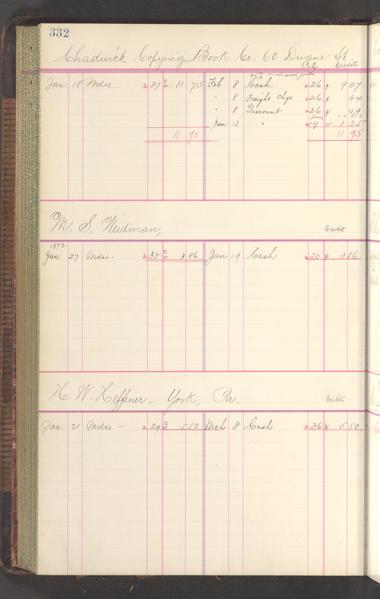 332
Chadwick Copying Book Co. 60 Duane St
Credits
Jan 18 Mdse 11 75 Feb 8 Cash 26 9 07
" 8 Freight Chgs 26 94
" 8 Discount 26 49
Jan 12 " 9 1 25
11 75 11 75
M. S. Weidman,
Credit
1892
Jan 27 Mdse - 35 3 86 Jan 19 Cash 20 3 86
H. W. Heffener - York, Pa.
Credit
Jan. 21 Mdse - 29 5 50 Mch 8 Cash 36 5 50